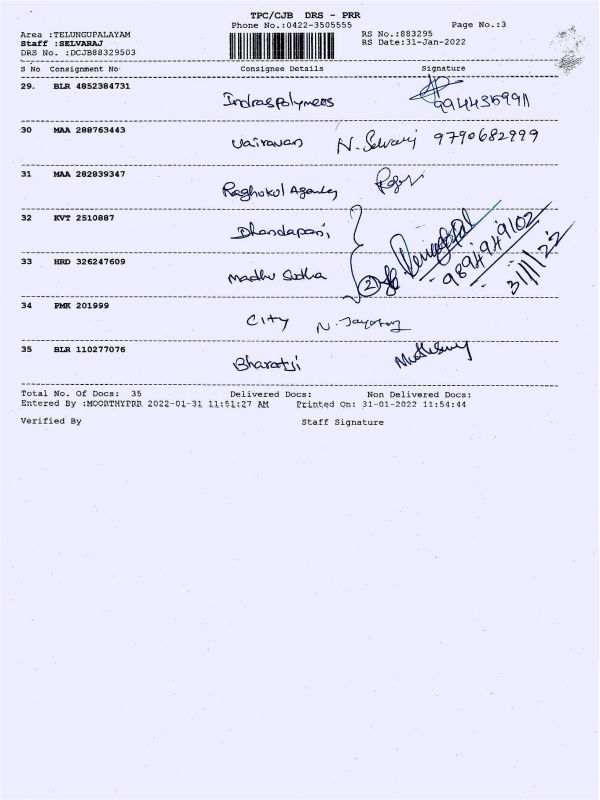 TPC/CJB DRS - PRR
Phone No.:0422-3505555 Page No.:3
Area :TELUNGUPALAYAM RS No.:883295
Staff :SELVARAJ RS Date:31-Jan-2022
DRS No. :DCJB88329503
S No Consignment No Consignee Details Signature
29. BLR 4852384731
Indraspolymers 9944359911
30 MAA 288763443
Vairavan N. Selvaraj 9790682999
31 MAA 282839347
Raghukul Agency
32 KVT 2510887
Dhandapani
33 HRD 326247609
Madhu Sudha 2 9894949102 31/1/22
34 PMK 201999
City N.
35 BLR 110277076
Bharatji
Total No. Of Docs: 35 Delivered Docs: Non Delivered Docs:
Entered By :MOORTHYPRR 2022-01-31 11:51:27 AM Printed On: 31-01-2022 11:54:44
Verified By Staff Signature